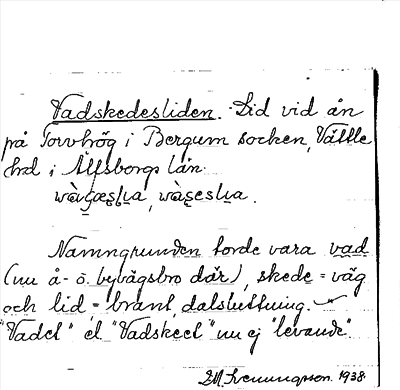 Vadskedesliden. Lid vid ån
på Torvhög i Bergum socken, Vättle
hd i Älfsborgs län.
Namngrunden torde vara vad
(nu å- o. byvägsbro där), skede = väg
och lid = brant dalsluttning.
"Vadet" el. "Vadskeet" nu ej "levande".
1938.